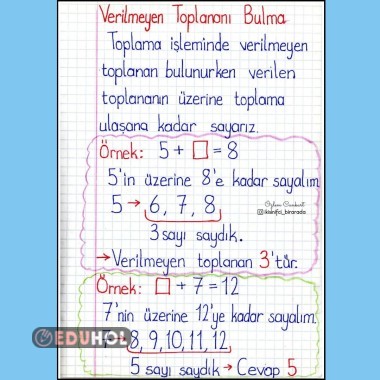 Verilmeyen Toplananı Bulma
Toplama işleminde verilmeyen
toplanan bulunurken verilen
toplananın üzerine toplama
ulaşana kadar sayarız.
Örnek: 5 + □ = 8
5'in üzerine 8'e kadar sayalım
5 → 6, 7, 8
3 sayı saydık.
→ Verilmeyen toplanan 3'tür.
Örnek: □ + 7 = 12
7'nin üzerine 12'ye kadar sayalım.
8, 9, 10, 11, 12
5 sayı saydık → Cevap 5
EDUHOL